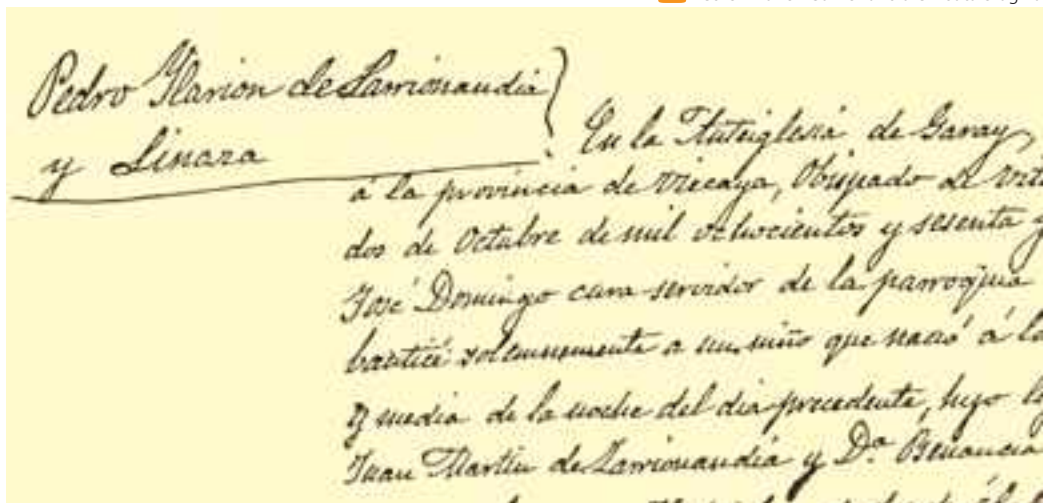 Pedro Ylarion de Larrionaudia
y Linaza
En la Anteiglesia de Garay,
á la provincia de Vizcaya, Obispado de Vito
dos de Octubre de mil ochocientos y sesenta y
José Domingo cura servidor de la parroquia
bauticé solemnemente a un niño que nació á la
y media de la noche del dia precedente, hijo le
Juan Martin de Larrionaudia y D.ª Benancia